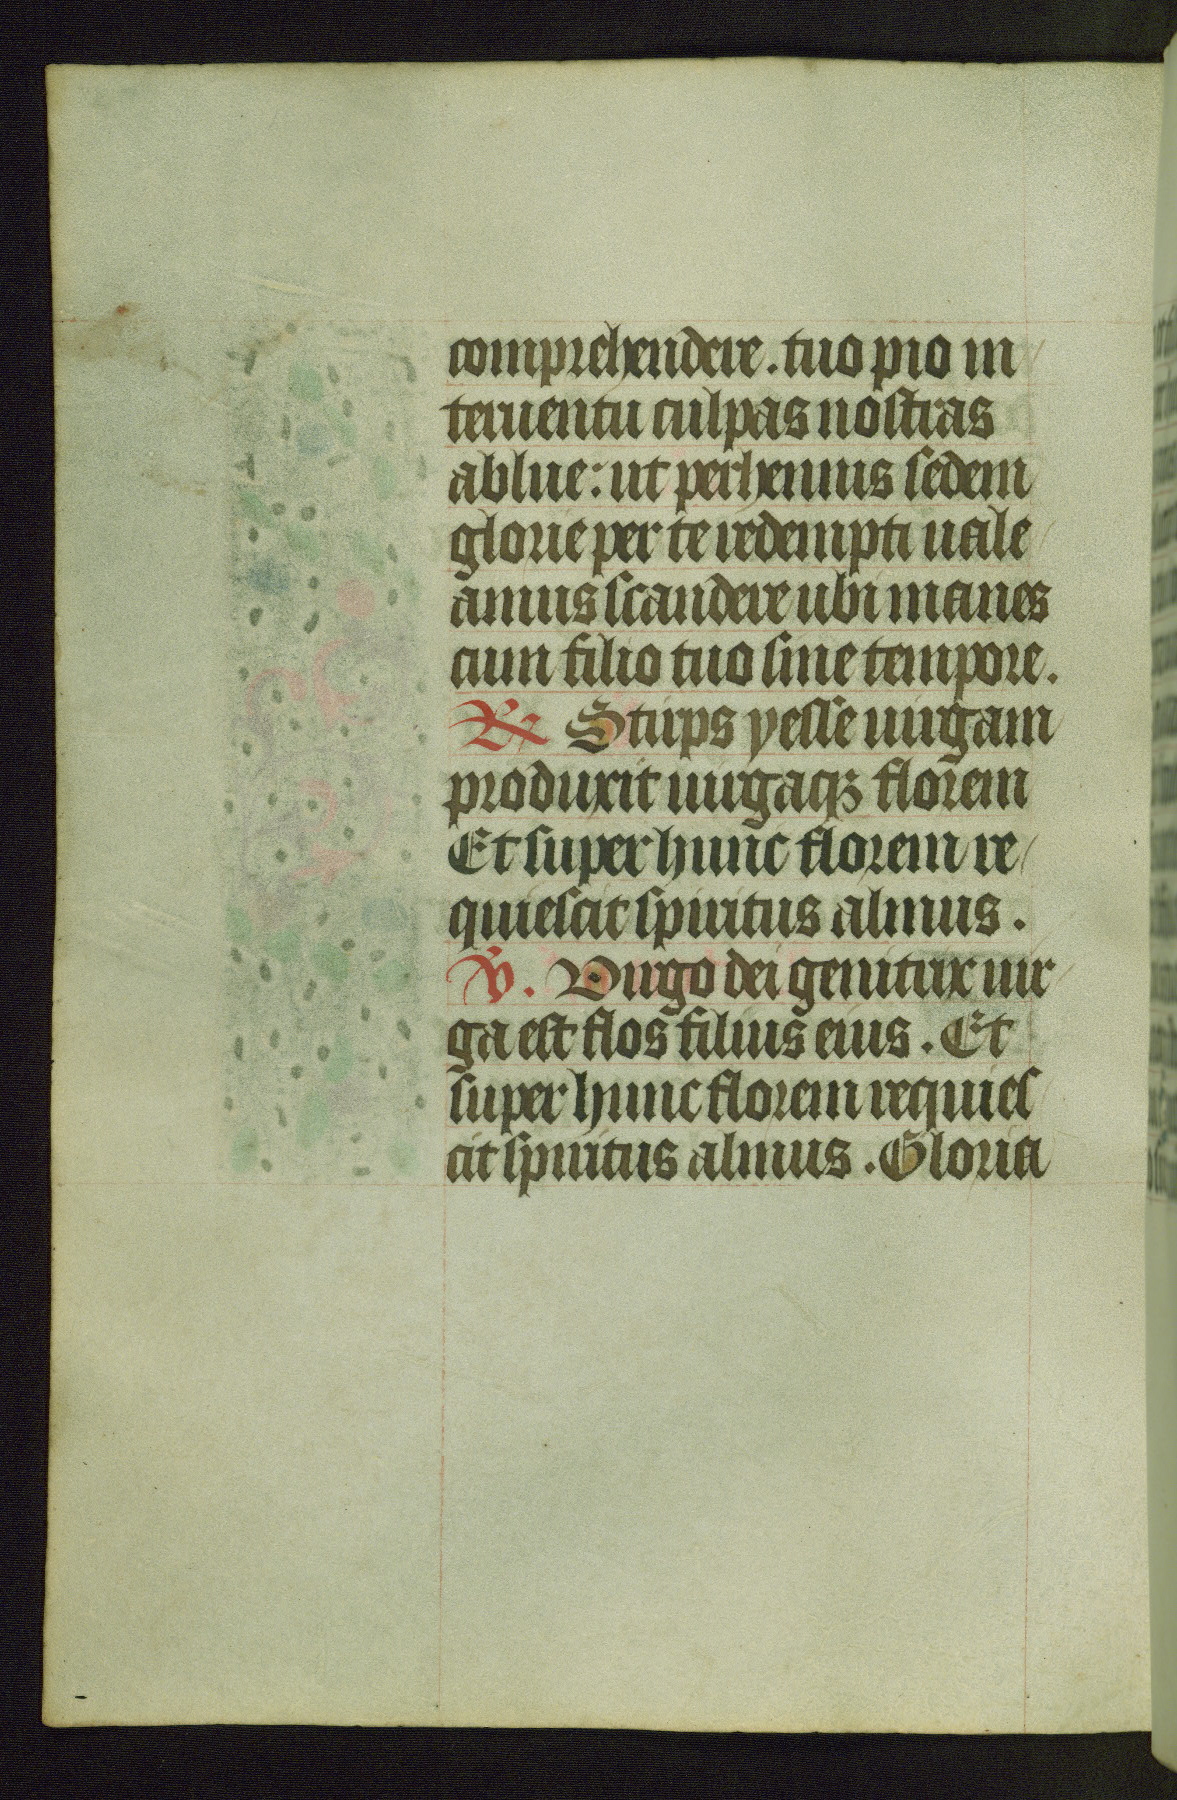 comprehendere. tuo pio in
teruentu culpas nostras
ablue: ut perhennis sedem
glorie per te redempti uale
amus scandere ubi manes
cum filio tuo sine tempore.
℟ Stirps yesse uirgam
produxit uirgaqꝫ florem
Et super hunc florem re
quiescit spiritus almus.
℣. Virgo dei genitrix uir
ga est flos filius eius. Et
super hunc florem requies
cit spiritus almus. Gloria